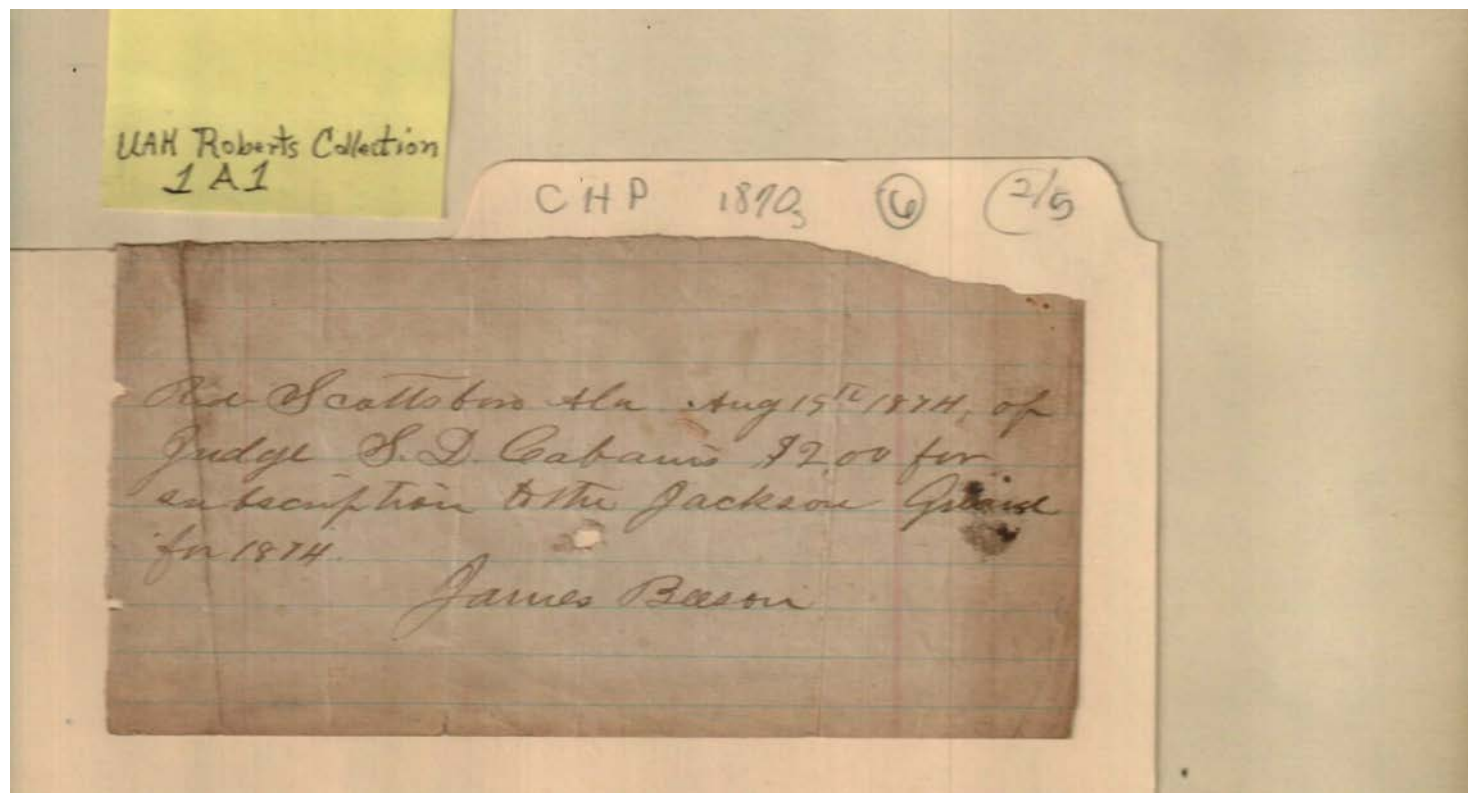 UAH Roberts Collection
1 A 1
CHP 1870s 6 2/5
Rcd Scottsboro Ala Aug 19th 1874, of
Judge S. D. Cabanis $2.00 for
subscription to the Jackson
for 1874.
James Beeson